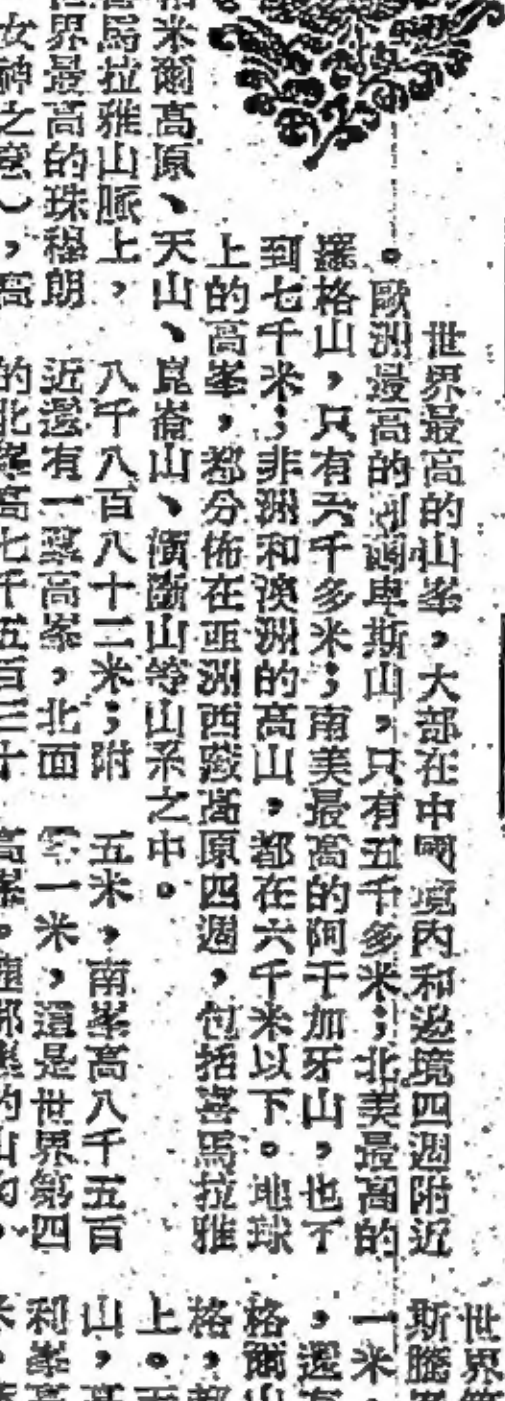 世界最高的山峯，大部在中國境內和邊境四週附近
。歐洲最高的阿爾卑斯山，只有五千多米；北美最高的
羅格山，只有六千多米；南美最高的阿干加牙山，也不
到七千米；非洲和澳洲的高山，都在六千米以下。地球
上的高峯，都分佈在亞洲西藏高原四週，包括喜馬拉雅
米爾高原、天山、崑崙山、山等山系之中。
馬拉雅山脈上，
世界最高的珠穆朗
女神之意），高
八千八百八十二米；附
近還有一羣高峯，北面
的北峯高七千五百三十
五米，南峯高八千五百
零一米，這是世界第四
高峯。
世界
斯騰
一米，
，還有
格爾山
格，都
上。
山，高
利峯高
米，